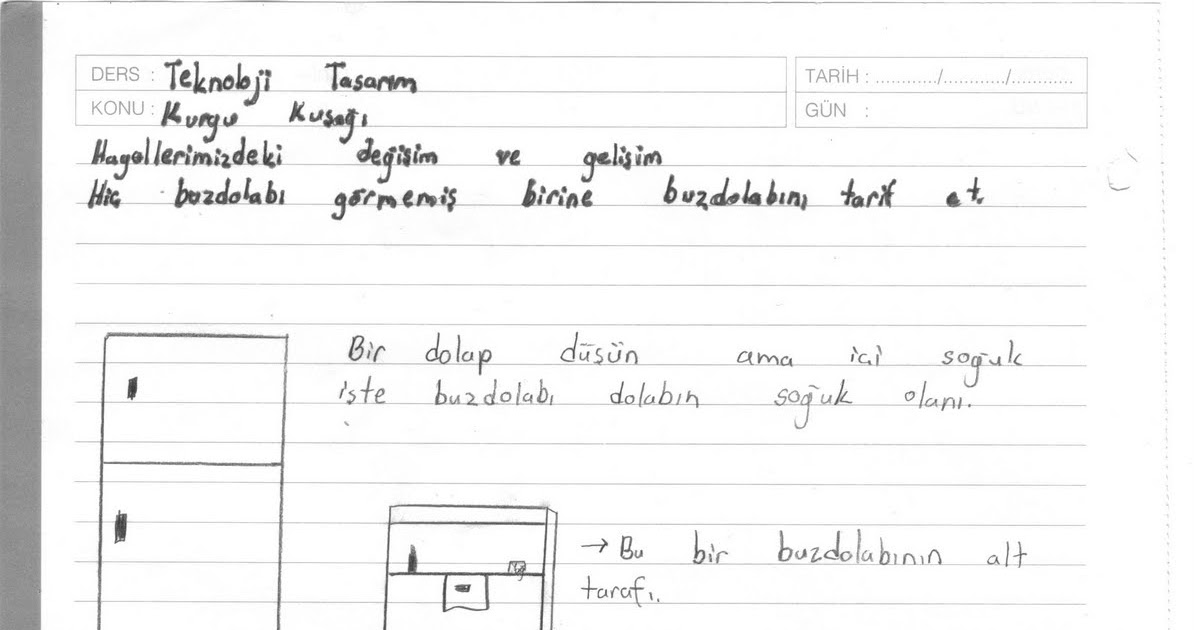 DERS : Teknoloji Tasarım
TARİH : ............/............/............
KONU : Kurgu Kuşağı
GÜN :
Hayallerimizdeki değişim ve gelişim
Hiç buzdolabı görmemiş birine buzdolabını tarif et.
Bir dolap düşün ama içi soğuk
işte buzdolabı dolabın soğuk olanı.
→ Bu bir buzdolabının alt
tarafı.